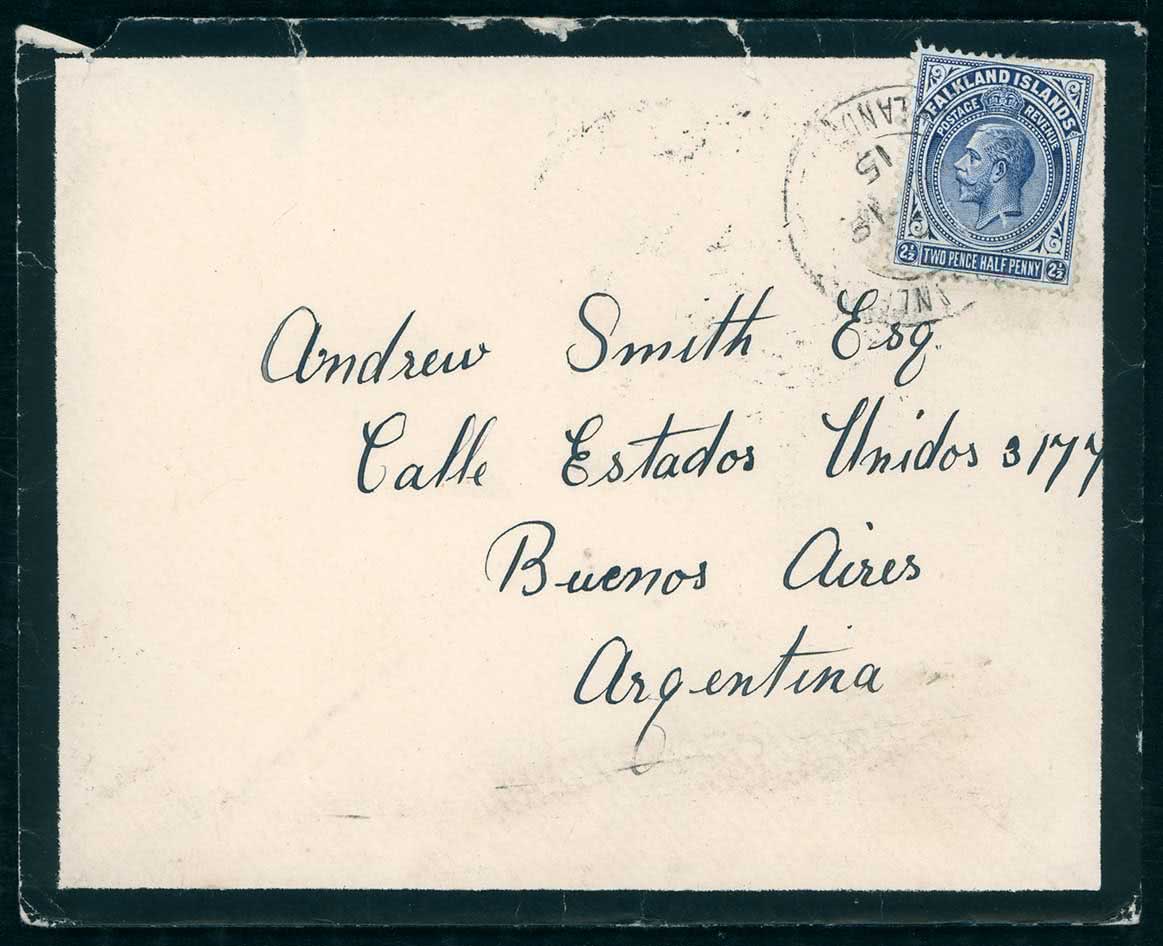 FALKLAND ISLANDS
POSTAGE REVENUE
2½ TWO PENCE HALF PENNY 2½
15
Andrew Smith Esq.
Calle Estados Unidos 3177
Buenos Aires
Argentina